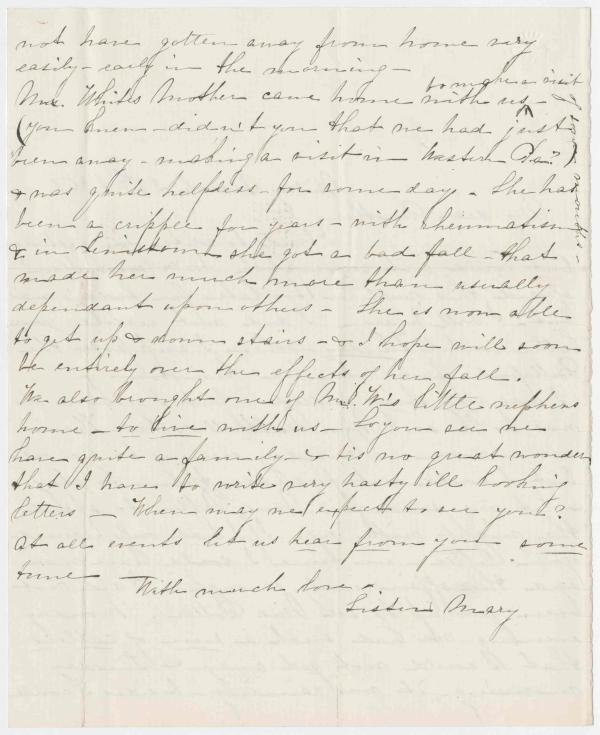 not have gotten away from home very
easily - early in the morning -
to make a visit
Mr. White's Mother came home with us ^ -
(you knew - didn't you that we had just
been away - making a visit in Western Pa?)
& was quite helpless - for some day - She has
been a cripple for years - with rheumatism
& in she got a bad fall - that
made her much more than usually
dependant upon others - She is now able
to get up & down stairs - & I hope will soon
be entirely over the effects of her fall.
We also brought one of Mr. W's little nephews
home - to live with us - So you see we
have quite a family - & tis no great wonder
that I have to write very hasty ill looking
letters - When may we expect to see you?
At all events let us hear from you some
time
With much love -
Sister Mary